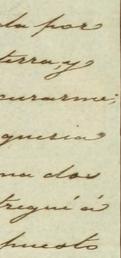 da por
terra, y
curarme;
queria
na dos
tregué á
puesto